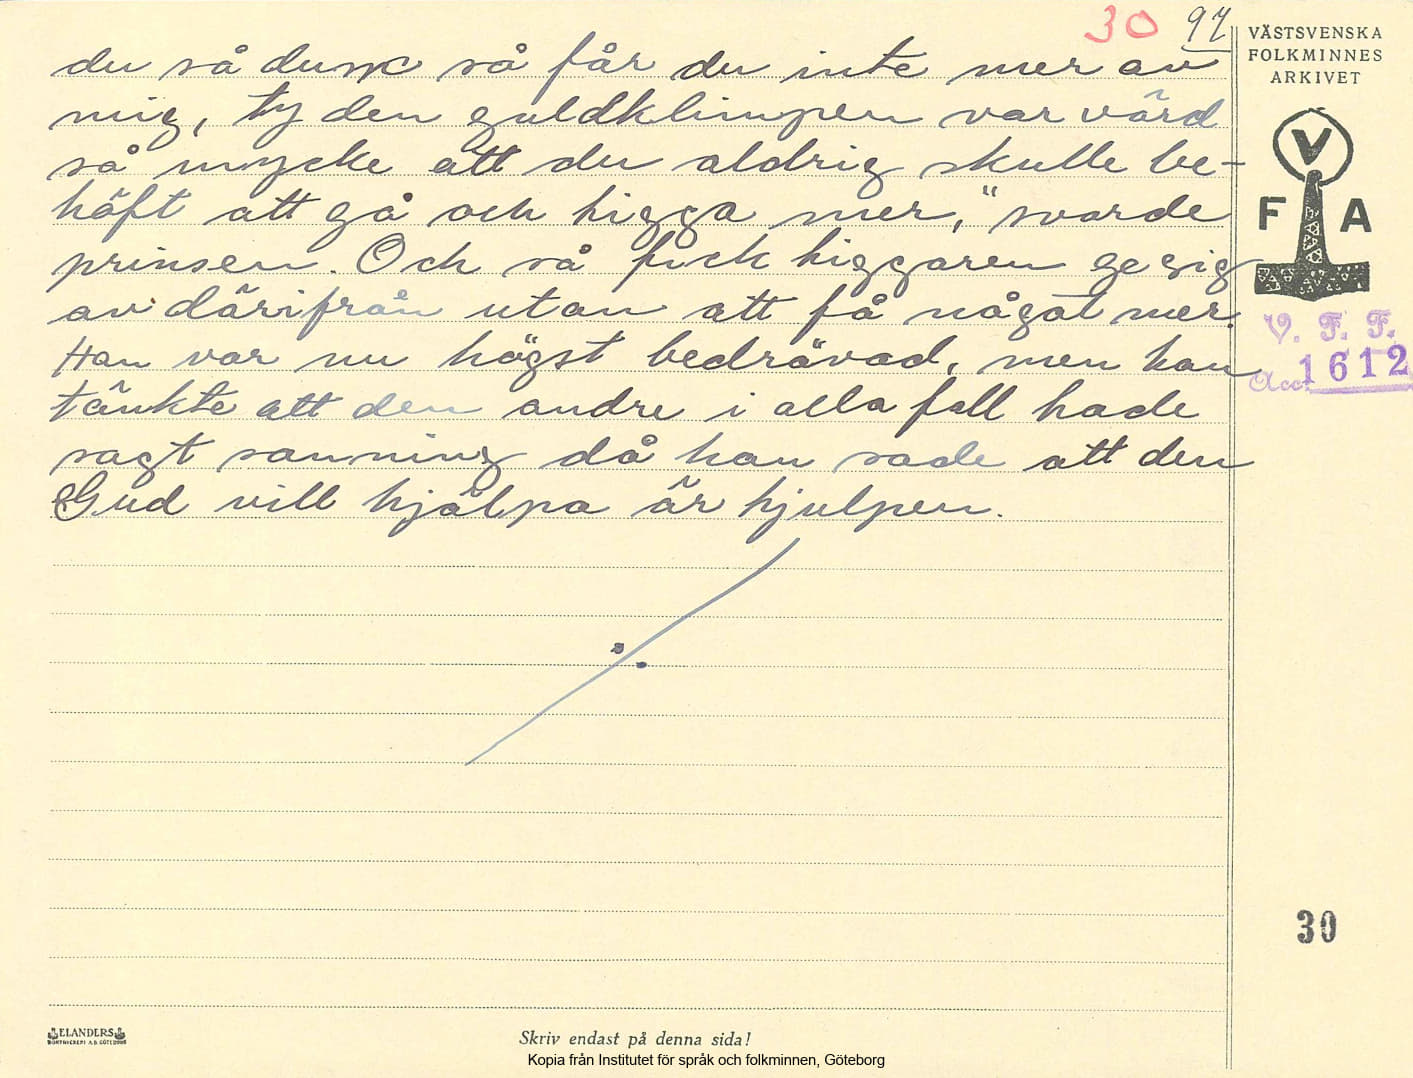 30 97
VÄSTSVENSKA
FOLKMINNES
ARKIVET
V
F A
V. F. F.
Acc. 1612
du så dum så får du inte mer av
mig, ty den guldklimpen var värd
så mycke att du aldrig skulle be-
höft att gå och tigga mer," svarde
prinsen. Och så fick tiggaren ge sig
av därifrån utan att få något mer.
Han var nu högst bedrövad, men han
tänkte att den andre i alla fall hade
sagt sanning då han sade att den
Gud vill hjälpa är hjulpen.
30
ELANDERS
BOKTRYCKERI A.B. GÖTEBORG
Skriv endast på denna sida!
Kopia från Institutet för språk och folkminnen, Göteborg